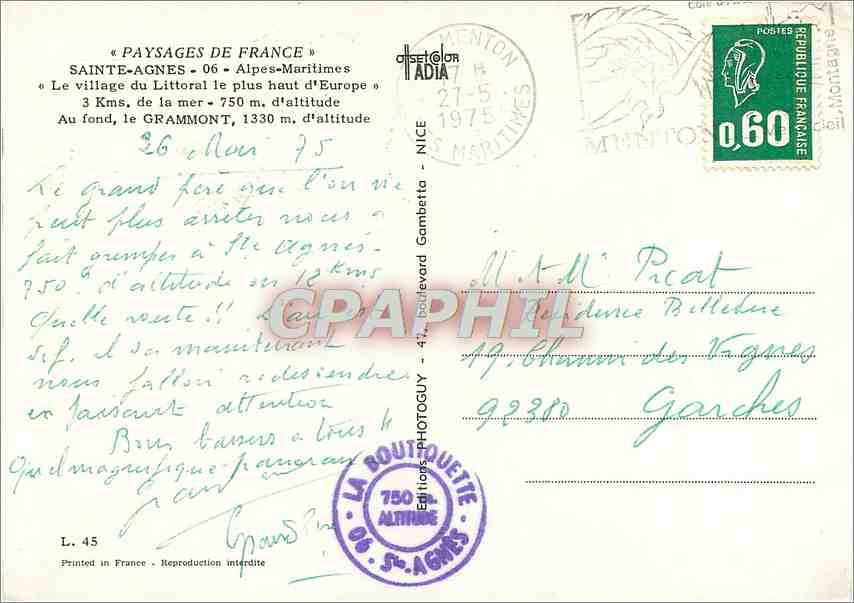 « PAYSAGES DE FRANCE »
SAINTE-AGNES - 06 - Alpes-Maritimes
« Le village du Littoral le plus haut d'Europe »
3 Kms. de la mer - 750 m. d'altitude
Au fond, le GRAMMONT, 1330 m. d'altitude
26 Mai 75
Le grand père que l'on ne
peut plus arrêter nous a
fait grimper à Ste Agnès.
750 d'altitude en 12 Kms
Quelle route !!
il va maintenant
nous falloir redescendre
en faisant attention
Bons baisers à tous
Quel magnifique
Grand Père
L. 45
Printed in France - Reproduction interdite
offset color
TADIA
Editions PHOTOGUY - 47, boulevard Gambetta - NICE
MENTON
27-5
1975
ES MARITIMES
MENTON
POSTES
REPUBLIQUE FRANÇAISE
0,60
M. et Me Picat
Résidence Bellevue
19, Chemin des Vignes
92380 Garches
CPAPHIL
LA BOUTIQUETTE
750 m.
ALTITUDE
06 - Ste-AGNÈS